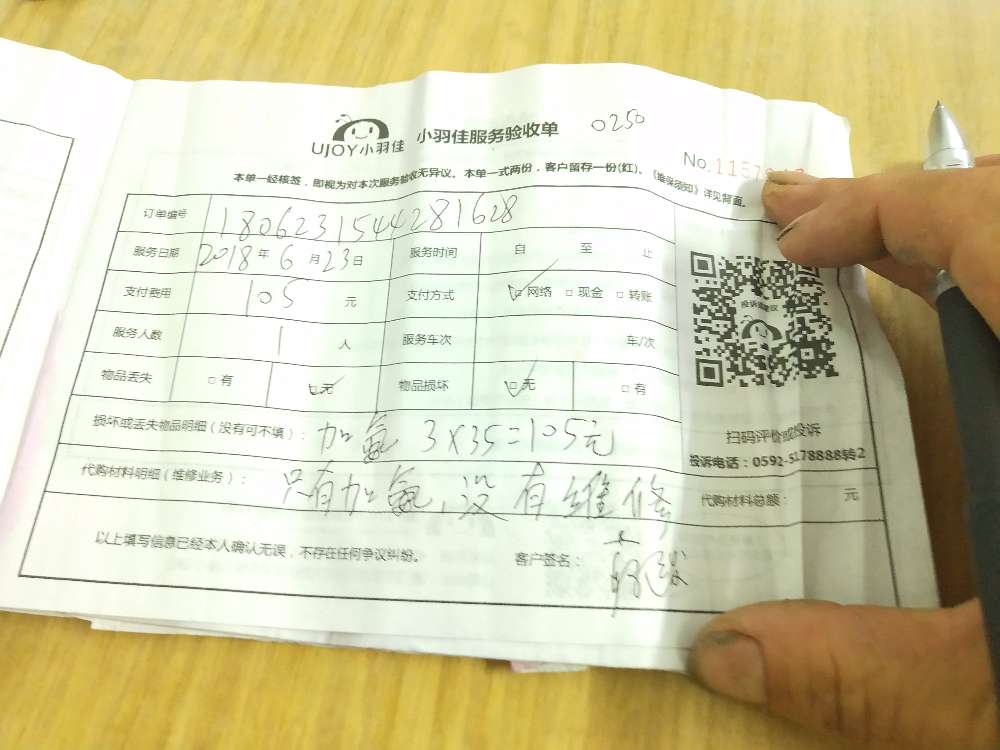 UJOY小羽佳 小羽佳服务验收单 0250
No.
本单一经核签，即视为对本次服务验收无异议。本单一式两份，客户留存一份(红)，《维保须知》详见背面。
订单编号 1806231544281628
服务日期 2018年6月23日 服务时间 自 至 止
支付费用 105 元 支付方式 □网络 □现金 □转账
服务人数 1 人 服务车次 车/次
物品丢失 □有 □无 物品损坏 □无 □有
投诉 建议
扫码评价或投诉
投诉电话：0592- 78888转2
损坏或丢失物品明细（没有可不填）： 加氨 3×35=105元
代购材料明细（维修业务）： 只有加氨，没有维修
代购材料总额： 元
以上填写信息已经本人确认无误，不存在任何争议纠纷。 客户签名：